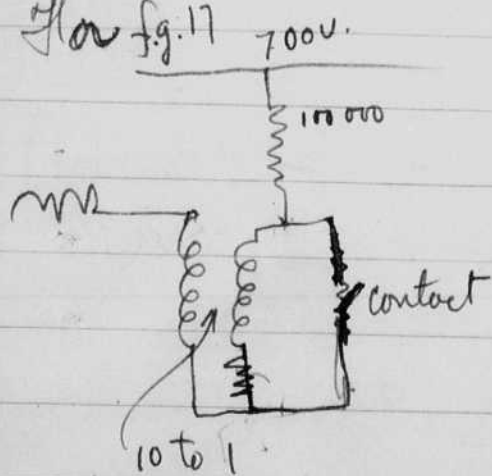 For fig. 17 700V.
100 000
contact
10 to 1